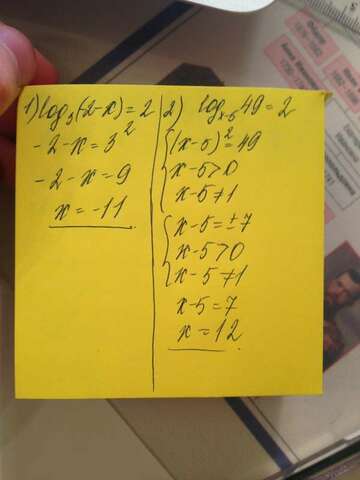 1) log₃(-2-x)=2
-2-x=3²
-2-x=9
x=-11
2) log x-5 49=2
(x-5)²=49
x-5>0
x-5≠1
x-5=±7
x-5>0
x-5≠1
x-5=7
x=12